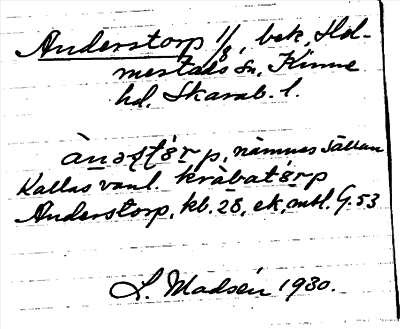 Anderstorp 1/8, bek., Hd-
mestads sn, Kinne
hd. Skarab. l.
ànəʂtǿr p, nämnes sällan
Kallas vanl. kràbatǿrp
Anderstorp, kb. 28, ek, mtl. G. 53
L. Madsén 1930.